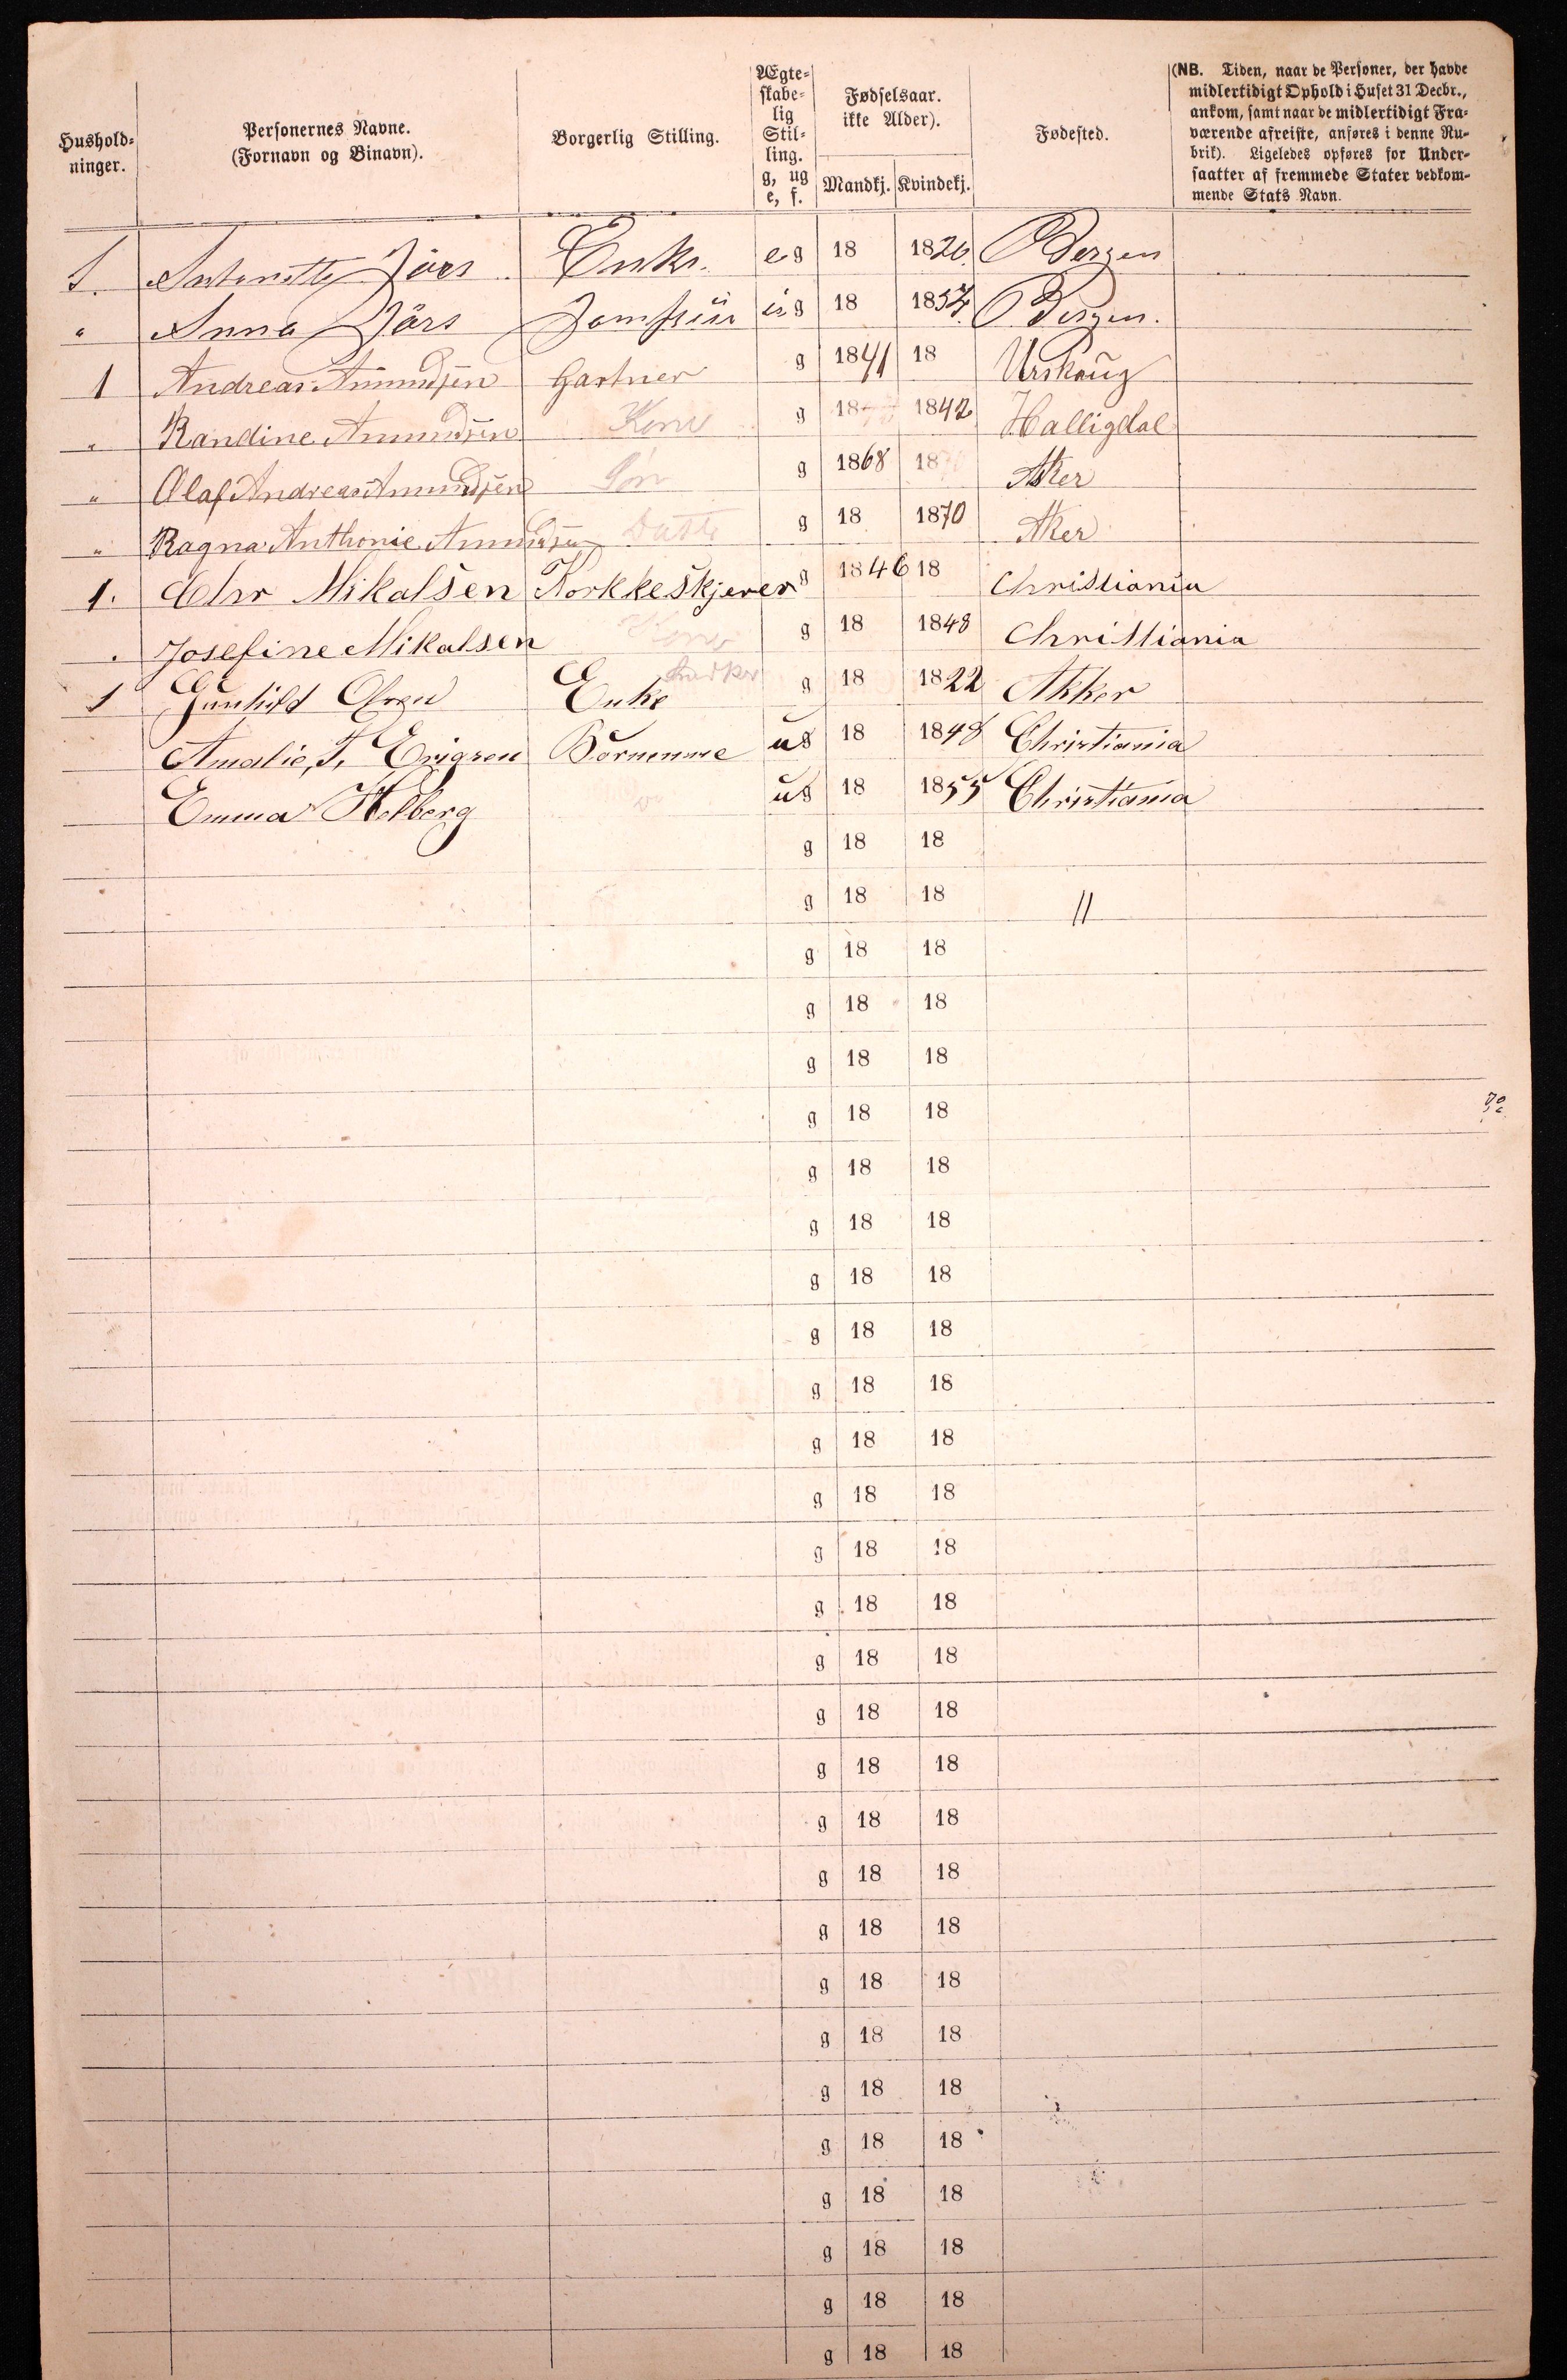 Hushold-
ninger.
Personernes Navne.
(Fornavn og Binavn).
Borgerlig Stilling.
Ægte-
skabe-
lig
Stil-
ling.
g, ug
e, f.
Fødselsaar.
ikke Alder).
Mandkj. Kvindekj.
Fødested.
(NB. Tiden, naar de Personer, der havde
midlertidigt Ophold i Huset 31 Decbr.,
ankom, samt naar de midlertidigt Fra-
værende afreiste, anføres i denne Ru-
brik). Ligeledes opføres for Under-
saatter af fremmede Stater vedkom-
mende Stats Navn.
1. Antonette Jörs Enke. e g 18 1826 Bergen
" Anna Jörs Jomfrüe üg 18 1857. Bergen.
1 Andreas Amundsen Gartner g 1841 18 Urskoug
" Randine Amundsen Kone g 18 1842 Halligdal
" Olaf Andreas Amundsen Søn g 1868 18 Aker
" Ragna Anthonie Amundsen Datte g 18 1870 Aker
1. Chr Mikalsen Korkkeskjerer g 1846 18 Christiania
. Josefine Mikalsen Kone g 18 1848 Christiania
1 Gunhild Olsen Enke g 18 1822 Akker
Amalie, T, Erigsen ug 18 1848 Christiania
Emma Holberg ug 18 1855 Christiania
g 18 18
g 18 18 "
g 18 18
g 18 18
g 18 18
g 18 18
g 18 18
g 18 18
g 18 18
g 18 18
g 18 18
g 18 18
g 18 18
g 18 18
g 18 18
g 18 18
g 18 18
g 18 18
g 18 18
g 18 18
g 18 18
g 18 18
g 18 18
g 18 18
g 18 18
g 18 18
g 18 18
g 18 18
g 18 18